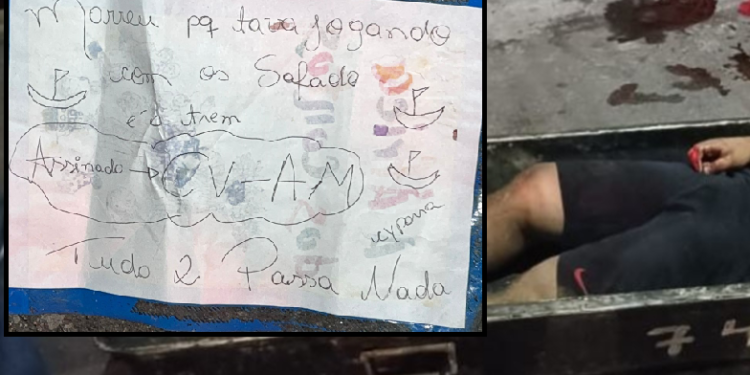 Morreu pq tava jogando
com os Safado
é o trem
Assinado → CV-AM
exparra
Tudo 2 Passa Nada
74